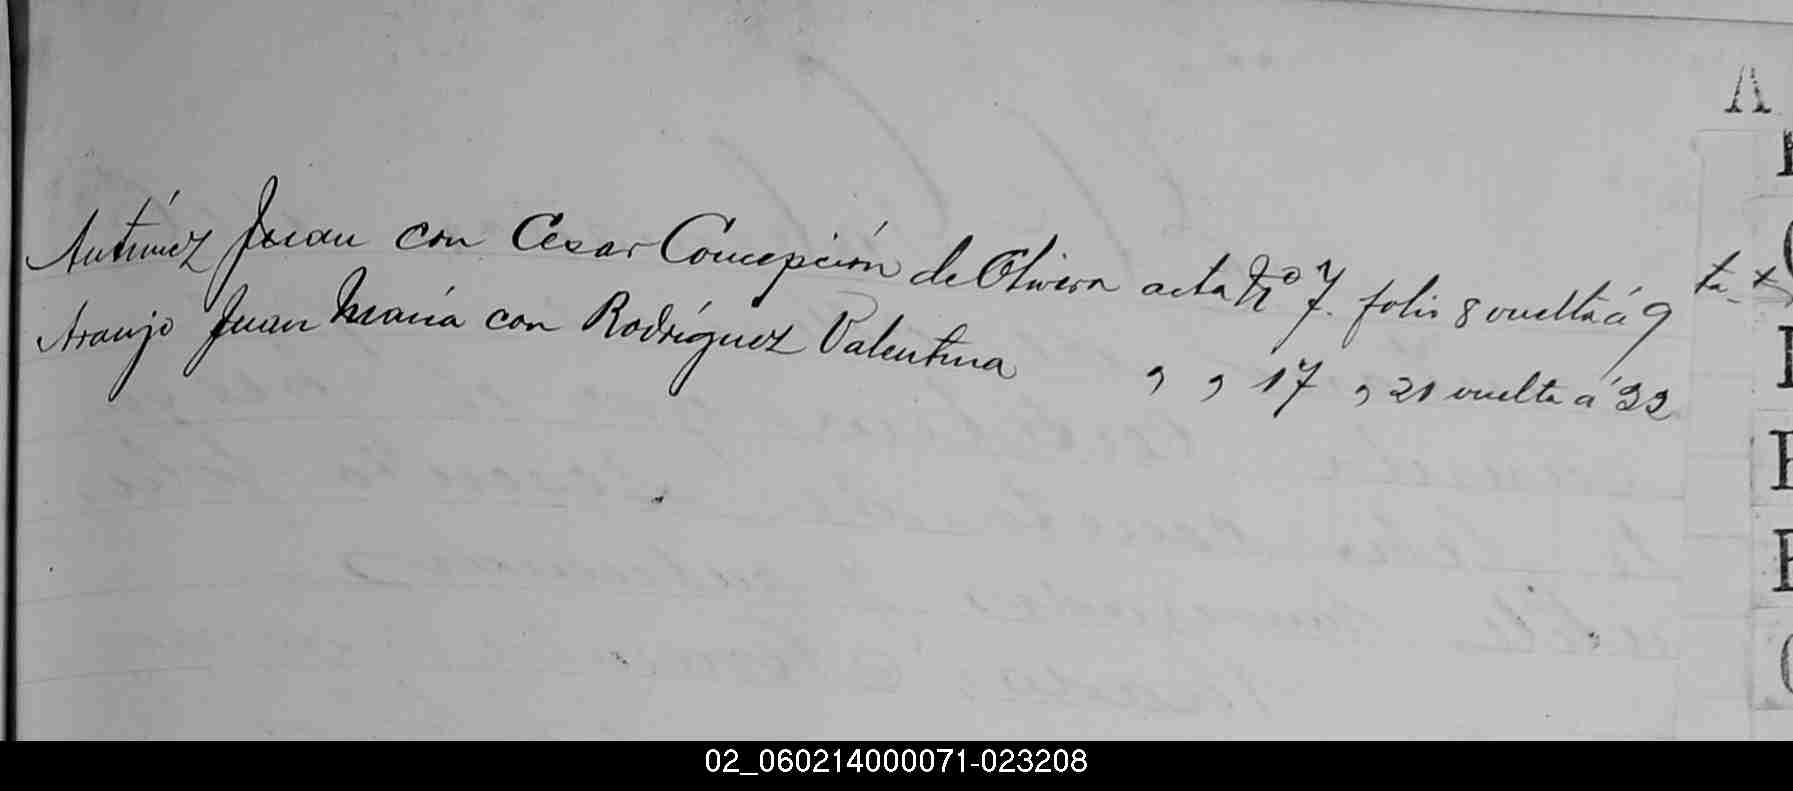 A
Antúnez Juan con Cesar Concepción de Olivera acta Nº 7. folio 8 vuelta á 9
Araujo Juan María con Rodríguez Valentina , , 17 , 21 vuelta á 22
02_060214000071-023208